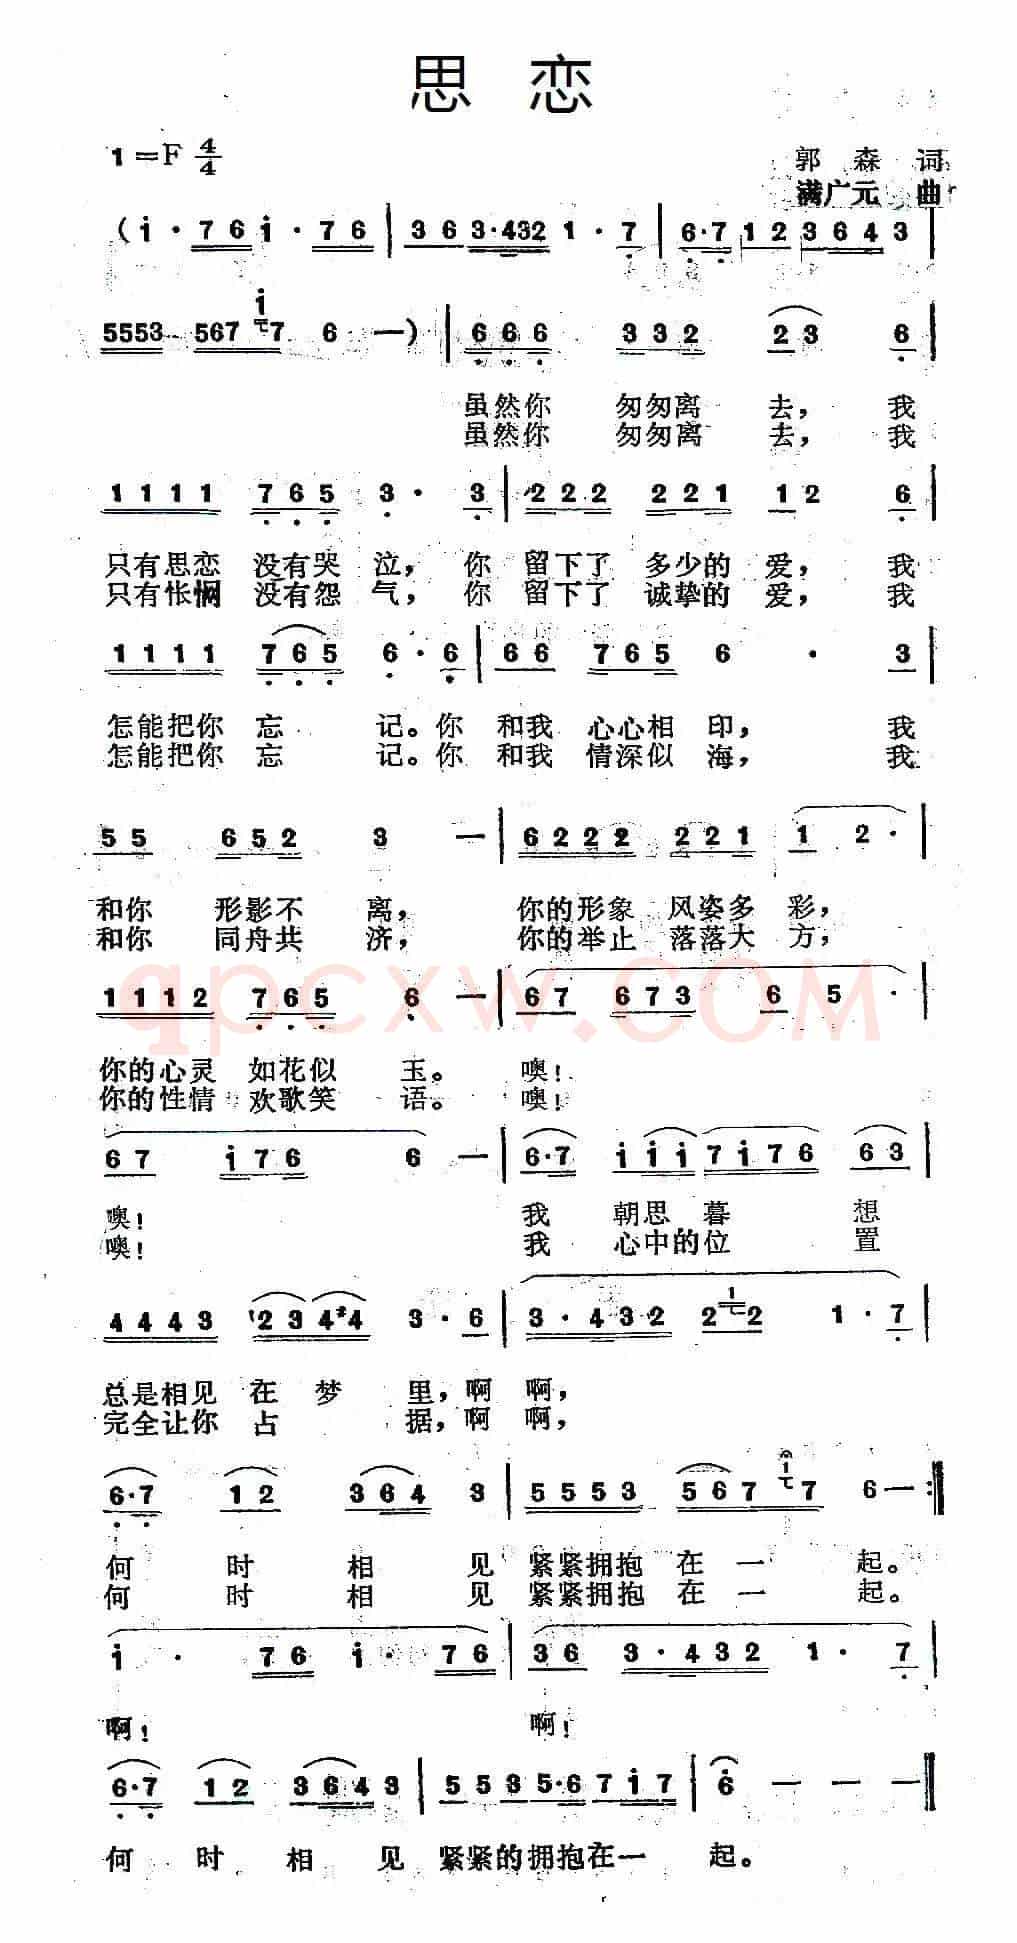 思 恋
1=F 4/4
郭 森 词
满广元 曲
(i· 76 i· 76 | 36 3·432 1· 7 | 6·7 12 364 3 |
5553 567 i 7 6 —) | 666 332 23 6 |
虽然你 匆匆离 去, 我
虽然你 匆匆离 去, 我
1111 765 3· 3 | 222 221 12 6 |
只有思恋 没有哭 泣, 你 留下了 多少的 爱, 我
只有怅惘 没有怨 气, 你 留下了 诚挚的 爱, 我
1111 765 6· 6 | 66 765 6 · 3 |
怎能把你 忘 记。你 和我 心心相 印, 我
怎能把你 忘 记。你 和我 情深似 海, 我
55 652 3 — | 6222 221 1 2· |
和你 形影不 离, 你的形象 风姿多 彩,
和你 同舟共 济, 你的举止 落落大 方,
1112 765 6 — | 67 673 6 5·
qpcxw.COM
你的心灵 如花似 玉。 噢!
你的性情 欢歌笑 语。 噢!
67 i76 6 — | 6·7 iii 7i76 63 |
噢! 我 朝思暮 想
噢! 我 心中的位 置
4443 234#4 3· 6 | 3·432 2 1 2 1· 7 |
总是相见 在 梦 里, 啊 啊,
完全让你 占 据, 啊 啊,
6·7 12 364 3 | 5553 567 1 7 6— :||
何 时 相 见 紧紧拥抱 在 一 起。
何 时 相 见 紧紧拥抱 在 一 起。
i · 76 i· 76 | 36 3·432 1· 7 |
啊! 啊!
6·7 12 364 3 | 55 35·67i7 | 6 — — — ||
何 时 相 见 紧紧的拥抱在一 起。